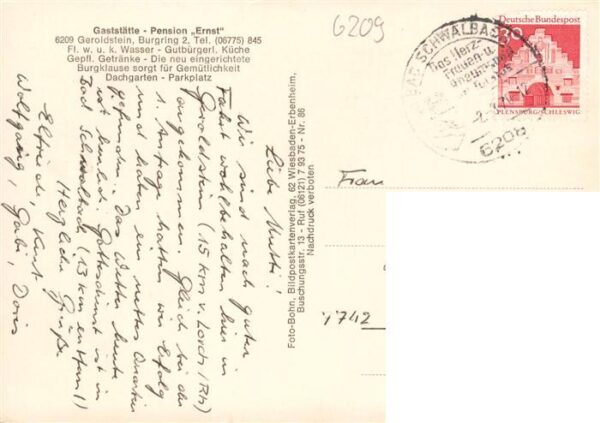 Gaststätte - Pension „Ernst"
6209 Geroldstein, Burgring 2, Tel. (06775) 845
Fl. w. u. k. Wasser - Gutbürgerl. Küche
Gepfl. Getränke - Die neu eingerichtete
Burgklause sorgt für Gemütlichkeit
Dachgarten - Parkplatz
6209
Liebe Mutti!
Wir sind nach guter
Fahrt wohlbehalten hier in
Geroldstein (15 km v. Lorch/Rh)
angekommen. Gleich bei der
1. Anfrage hatten wir Erfolg
und haben ein nettes Quartier
gefunden. Das Wetter heute
ist herrlich. Gottesdienst ist in
Bad Schwalbach (13 km entfernt)
Herzliche Grüße
Elfriede, Kurt
Wolfgang, Gabi, Doris
Foto-Bohn, Bildpostkartenverlag, 62 Wiesbaden-Erbenheim,
Buschungsstr. 13 - Ruf (06121) 7 93 75 - Nr. 86
Nachdruck verboten
BAD SCHWALBACH
Das Herz-
Frauen-u.
6208
Deutsche Bundespost
30
FLENSBURG/SCHLESWIG
Frau
7742